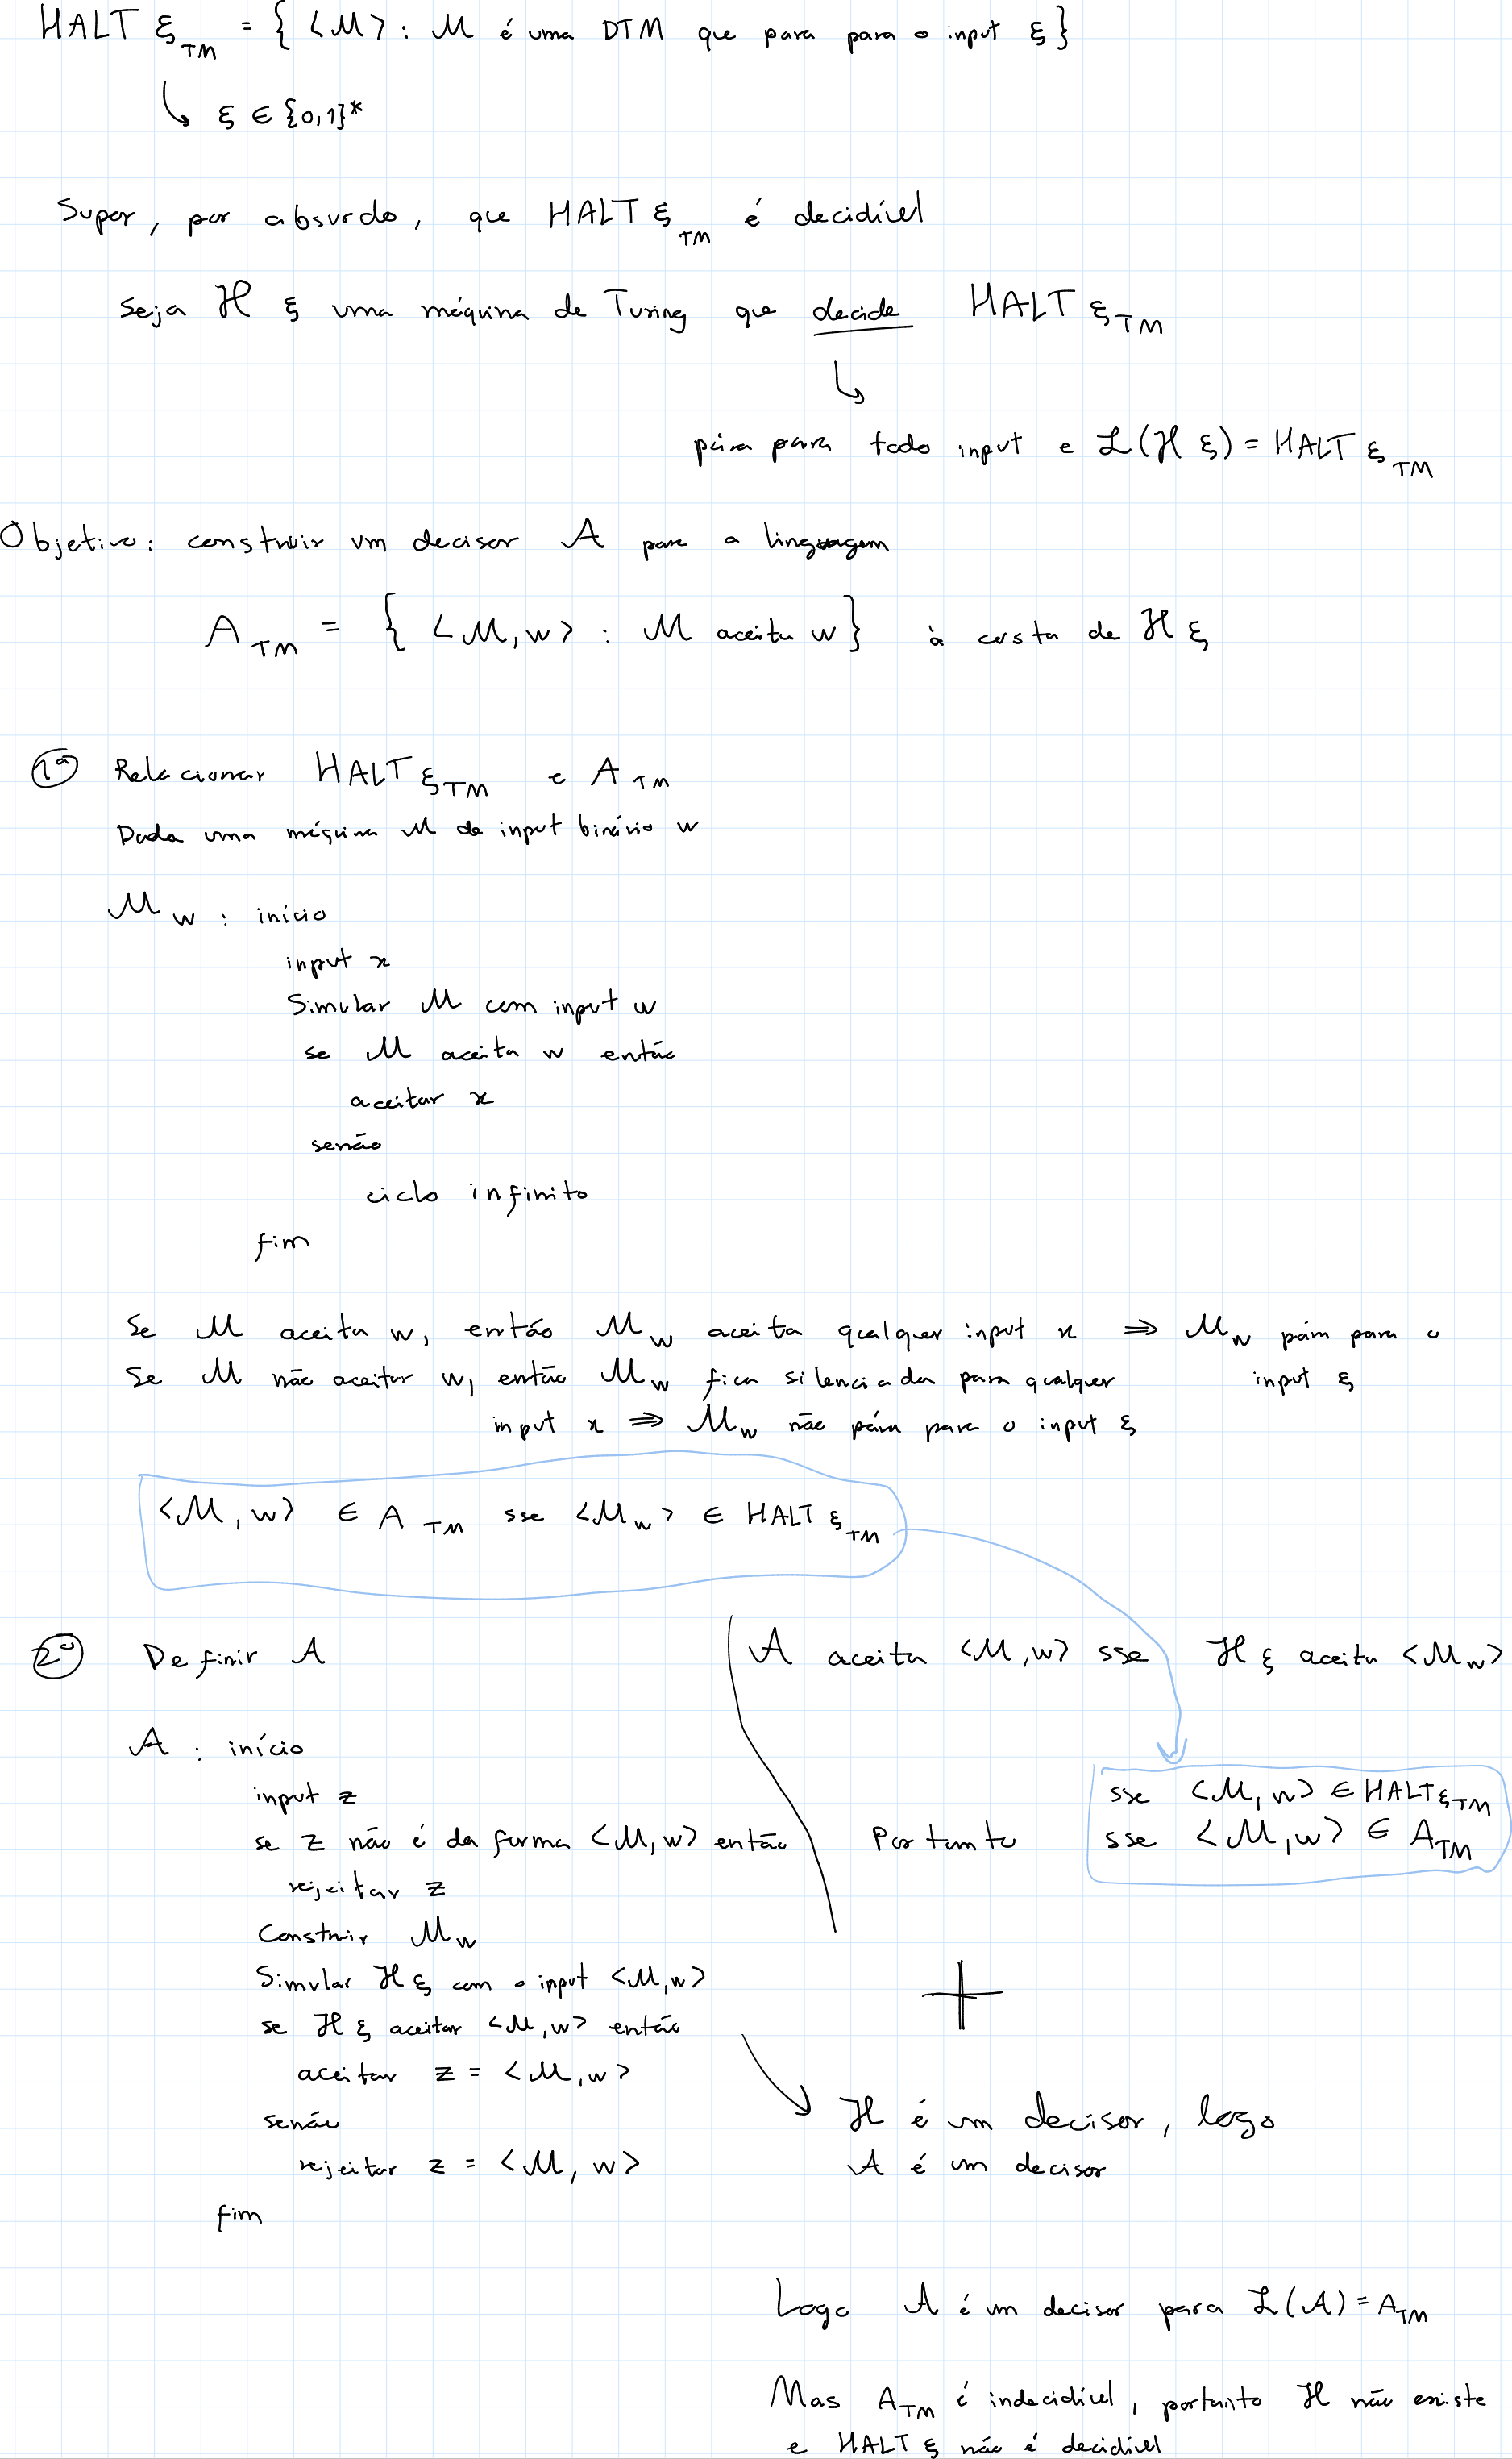 HALT ξ_TM = { <M> : M é uma DTM que para para o input ξ }
↳ ξ ∈ {0,1}*
Supor, por absurdo, que HALT ξ_TM é decidível
Seja H ξ uma máquina de Turing que decide HALT ξ_TM
↳
pára para todo input e L(H ξ) = HALT ξ_TM
Objetivo: construir um decisor A para a linguagem
A_TM = { <M, w> : M aceita w } à custa de H ξ
1º Relacionar HALT ξ_TM e A_TM
Dada uma máquina M de input binário w
M_w : início
input x
Simular M com input w
se M aceita w então
aceitar x
senão
ciclo infinito
fim
Se M aceita w, então M_w aceita qualquer input x ⇒ M_w pára para o
input ξ
Se M não aceitar w, então M_w fica silenciada para qualquer
input x ⇒ M_w não pára para o input ξ
<M, w> ∈ A_TM sse <M_w> ∈ HALT ξ_TM
2º Definir A
A : início
input z
se z não é da forma <M, w> então
rejeitar z
Construir M_w
Simular H ξ com o input <M, w>
se H ξ aceitar <M, w> então
aceitar z = <M, w>
senão
rejeitar z = <M, w>
fim
A aceita <M, w> sse H ξ aceita <M_w>
sse <M, w> ∈ HALT ξ_TM
Portanto sse <M, w> ∈ A_TM
+
H é um decisor, logo
A é um decisor
Logo A é um decisor para L(A) = A_TM
Mas A_TM é indecidível, portanto H não existe
e HALT ξ não é decidível